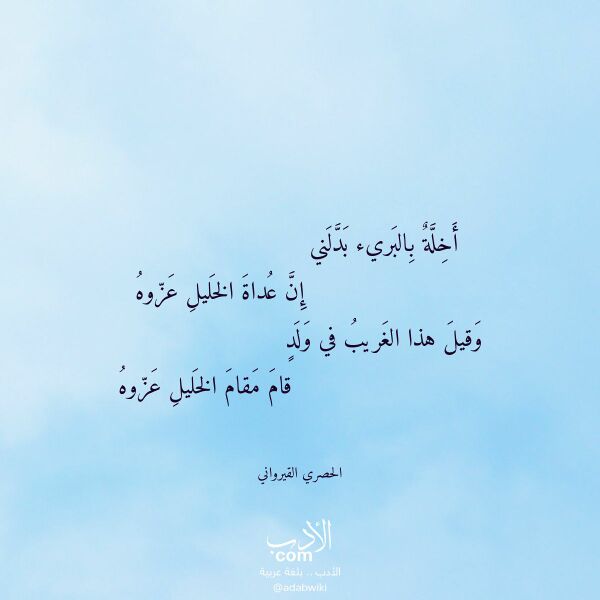 أَخِلَّةٌ بِالبَريء بَدَّلَني
إِنَّ عُداةَ الخَليلِ عَزّوهُ
وَقيلَ هذا الغَريبُ في وَلَدٍ
قامَ مَقامَ الخَليلِ عَزّوهُ
الحصري القيرواني
الأدب
com
الأدب .. بلغة عربية
@adabwiki